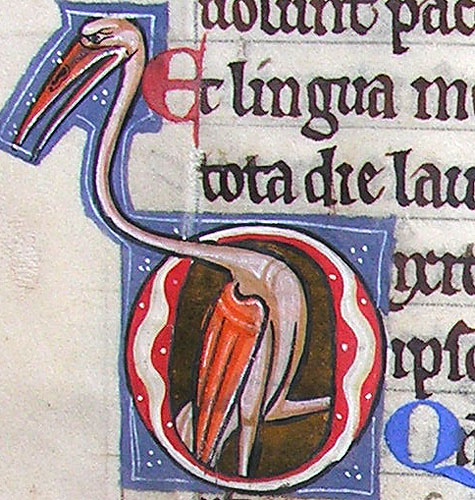 uolunt pac
Et lingua me
tota die lau
Dixit
ipso